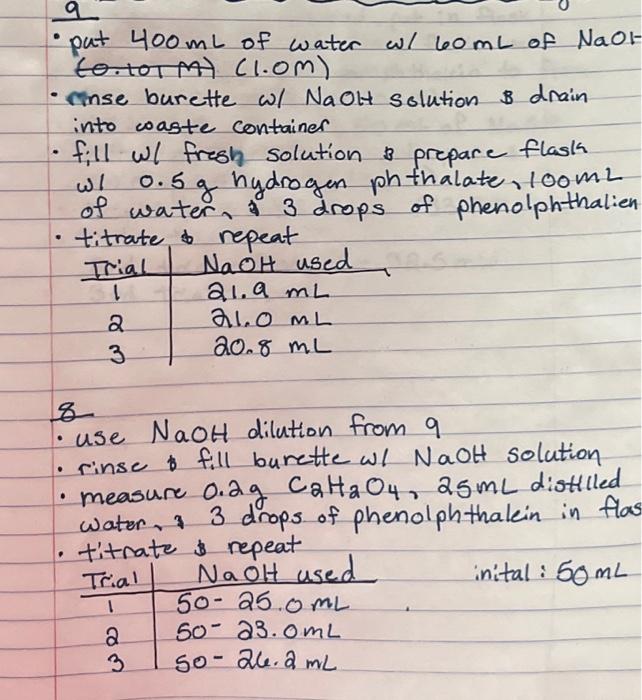 9
• put 400mL of water w/ 60mL of NaOH
(0.101 M) (1.0M)
• rinse burette w/ NaOH solution & drain
into waste container
• fill w/ fresh solution & prepare flask
w/ 0.5g hydrogen phthalate, 100mL
of water, & 3 drops of phenolphthalien
• titrate & repeat
Trial NaOH used
1 21.9 mL
2 21.0 mL
3 20.8 mL
8
• use NaOH dilution from 9
• rinse & fill burette w/ NaOH solution
• measure 0.2g C2H2O4, 25mL distilled
water, & 3 drops of phenolphthalein in flas
• titrate & repeat
Trial NaOH used inital: 50mL
1 50- 25.0mL
2 50- 23.0mL
3 50- 26.2mL